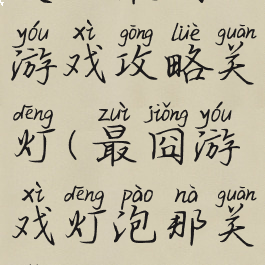 yóu xì gōng lüè guān
游戏攻略关
dēng zuì jiǒng yóu
灯(最囧游
xì dēng pào nà guān
戏灯泡那关